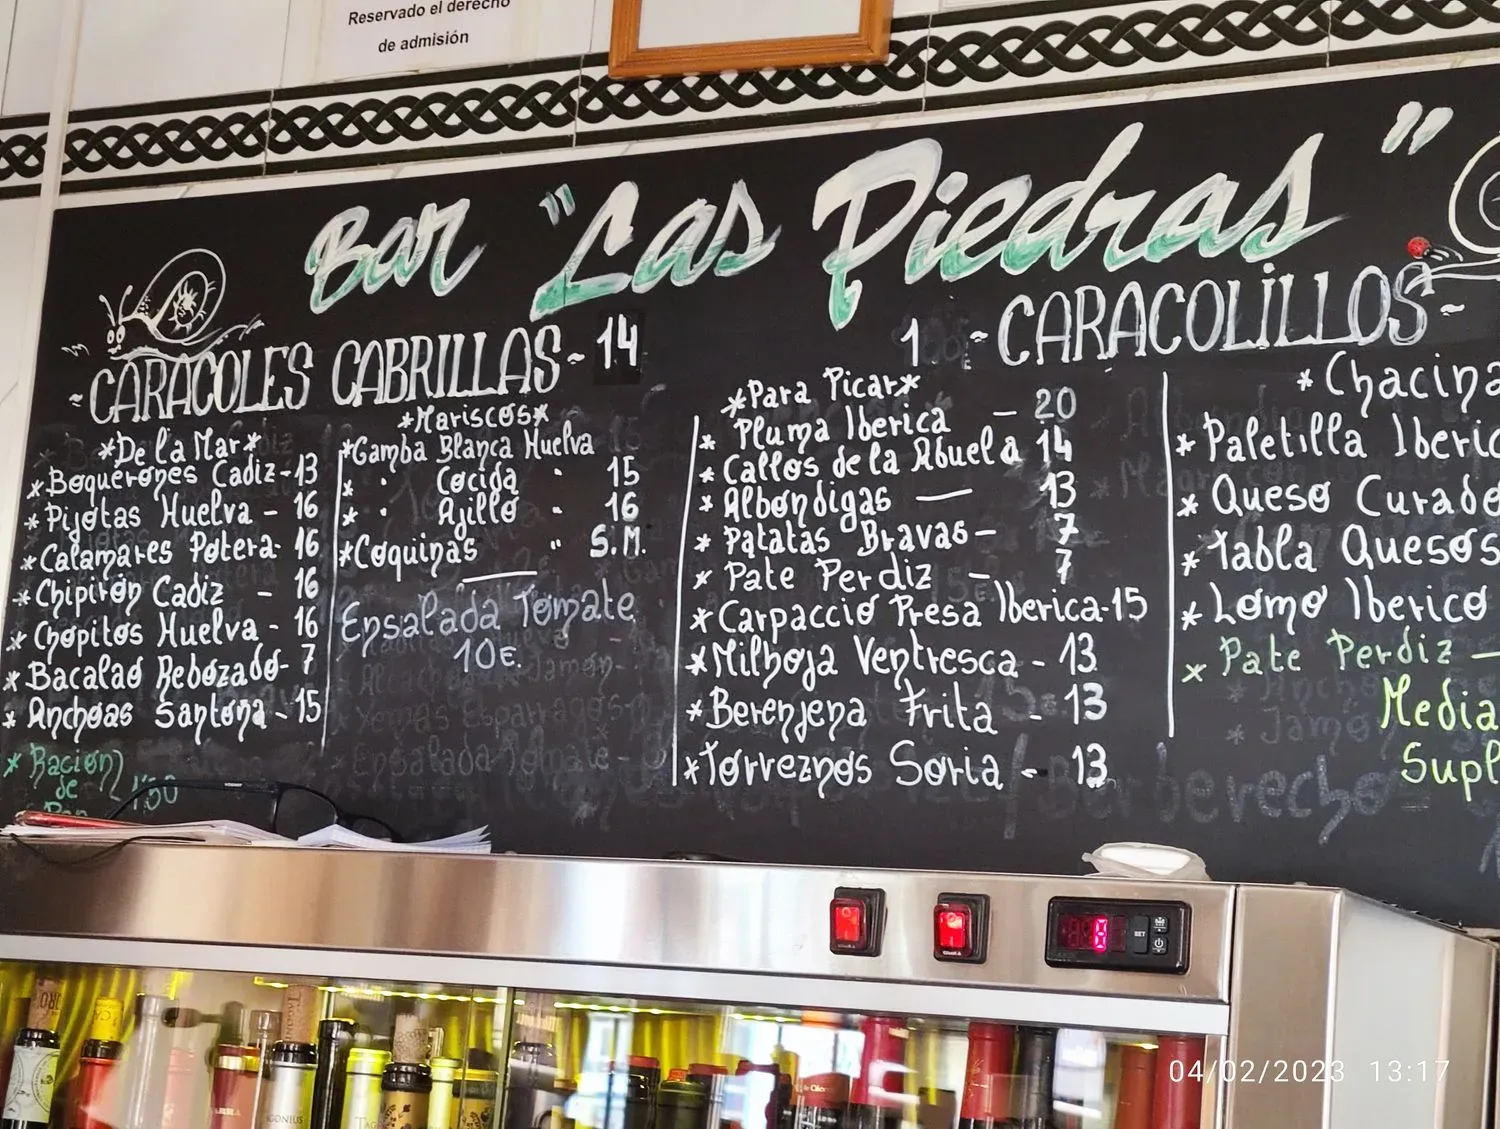 Reservado el derecho
de admisión
Bar "Las Piedras"
~CARACOLES CABRILLAS~ 14
1 ~CARACOLILLOS~
*De la Mar*
*Boquerones Cadiz-13
*Pijotas Huelva - 16
*Calamares Potera- 16
*Chipirón Cadiz - 16
*Chopitos Huelva - 16
*Bacalao Rebozado- 7
*Anchoas Santoña - 15
*Ración
de
Pan 1'50
*Mariscos*
*Gamba Blanca Huelva
* " Cocida " 15
* " Ajillo " 16
*Coquinas " S.M.
Ensalada Tomate
10€.
*Para Picar*
* Pluma Iberica - 20
* Callos de la Abuela 14
* Albóndigas — 13
* Patatas Bravas- 7
* Pate Perdiz - 7
*Carpaccio Presa Iberica-15
*Milhoja Ventresca - 13
*Berenjena Frita - 13
*Torreznos Soria - 13
*Chacina
* Paletilla Iberic
* Queso Curado
* Tabla Quesos
* Lomo Iberico
* Pate Perdiz —
Media
Supl
Berberecho
SET
04/02/2023 13:17